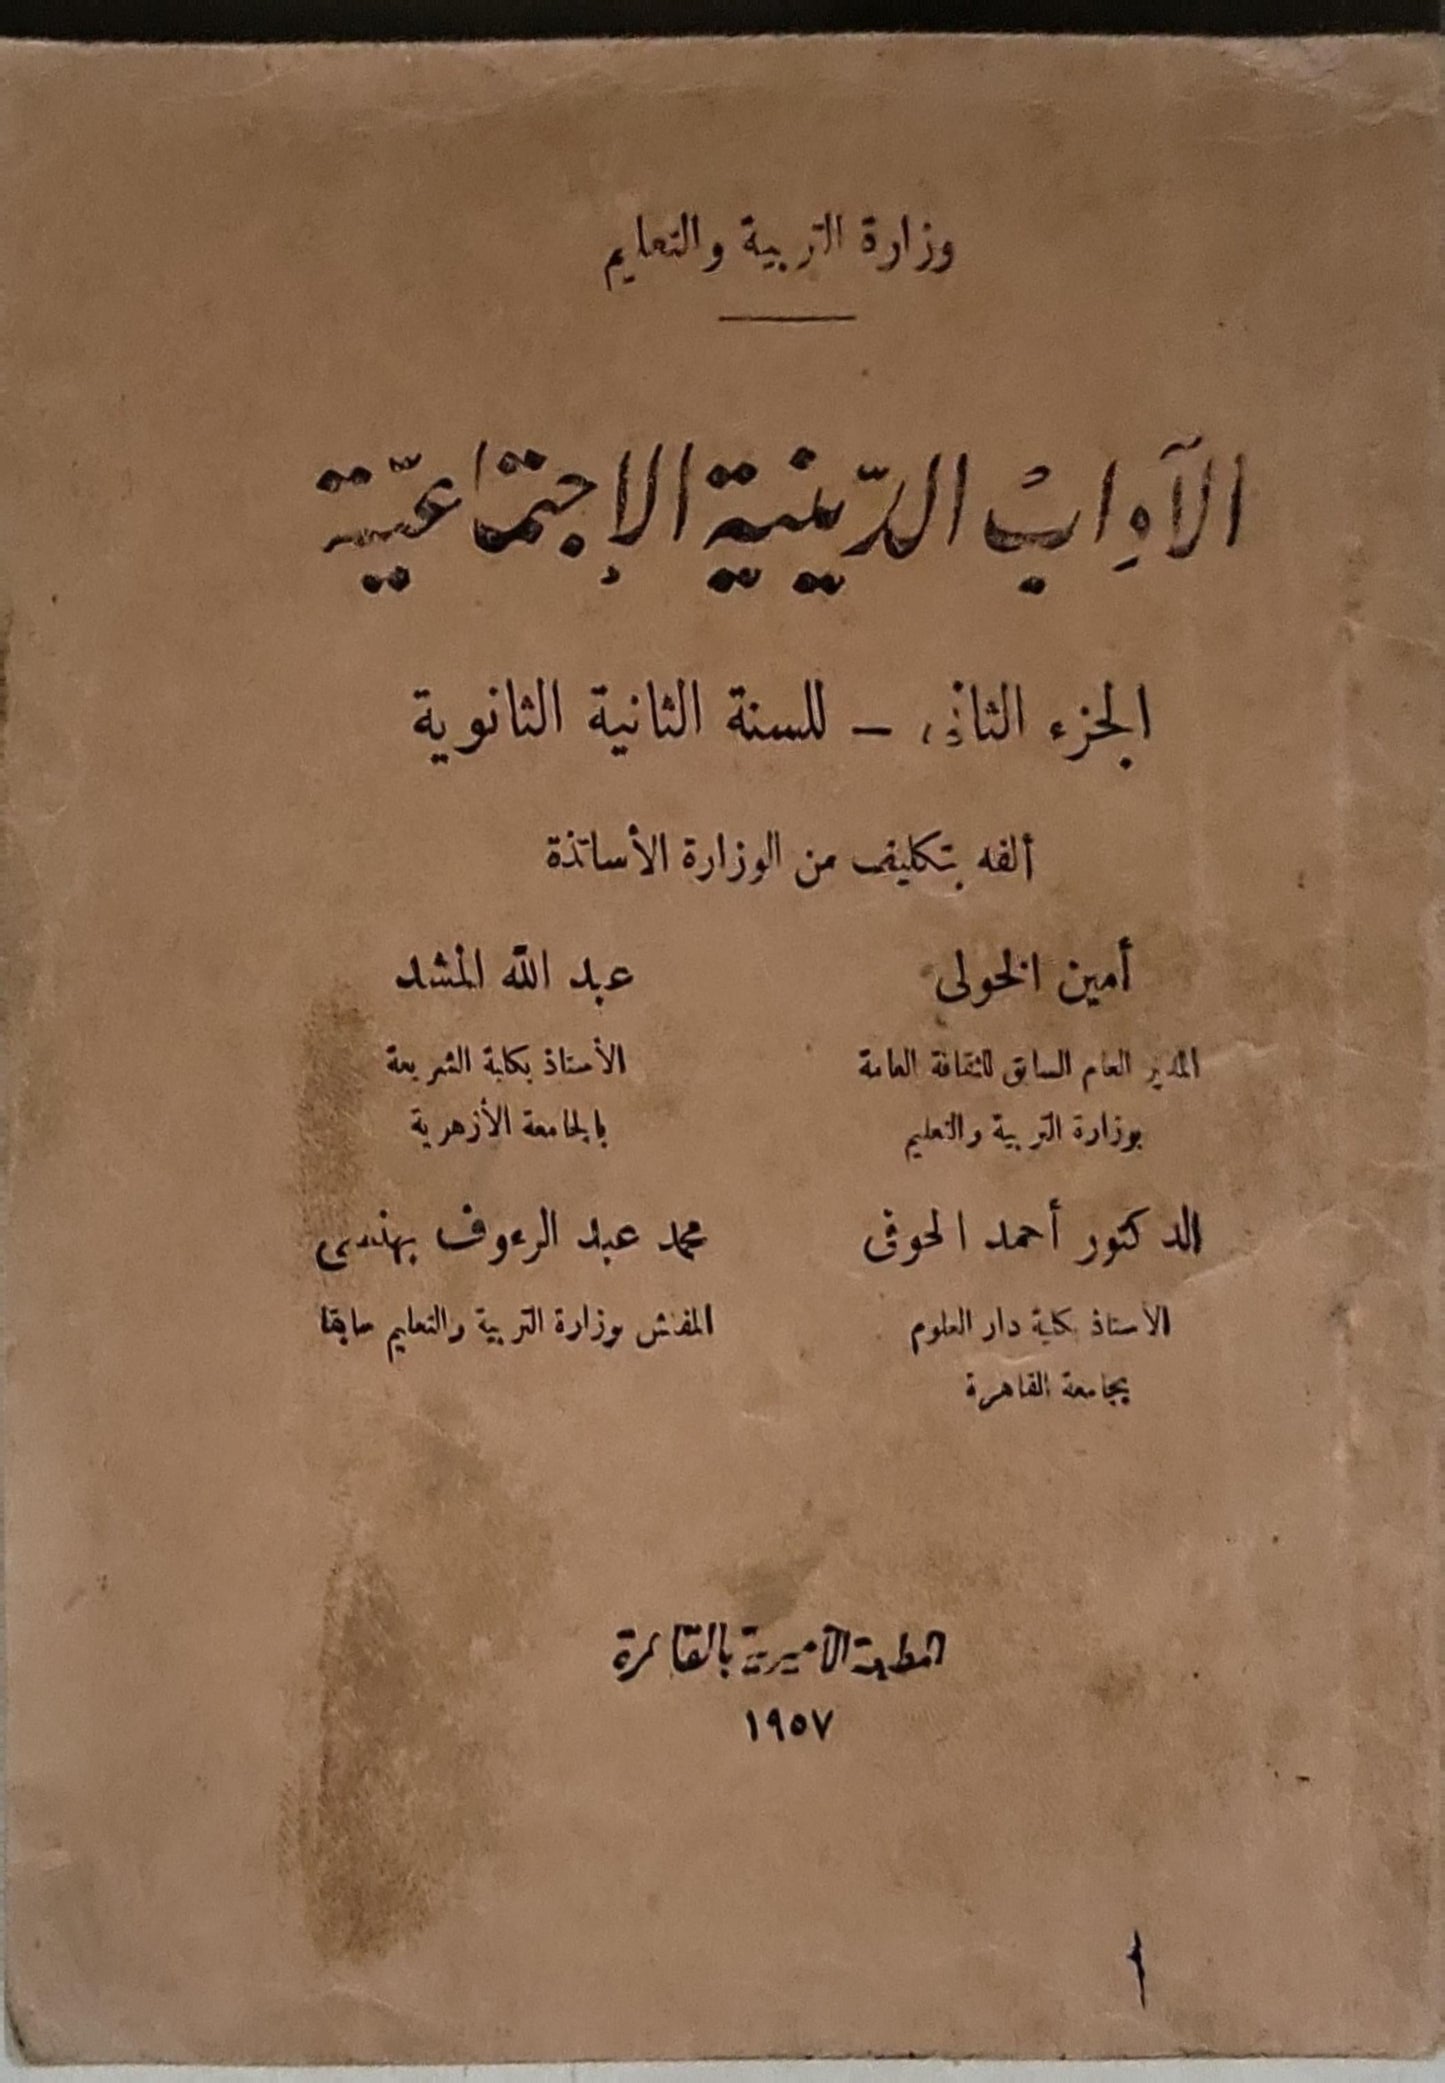 وزارة التربية والتعليم
الآداب الدّينية الإجتماعيّة
الجزء الثانى – للسنة الثانية الثانوية
ألفه بتكليف من الوزارة الأساتذة
أمين الخولى
المدير العام السابق للثقافة العامة
بوزارة التربية والتعليم
عبد الله المشد
الأستاذ بكلية الشريعة
بالجامعة الأزهرية
الدكتور أحمد الحوفى
الأستاذ بكلية دار العلوم
بجامعة القاهرة
محمد عبد الرءوف بهنسى
المفتش بوزارة التربية والتعليم سابقا
المطبعة الأميرية بالقاهرة
١٩٥٧